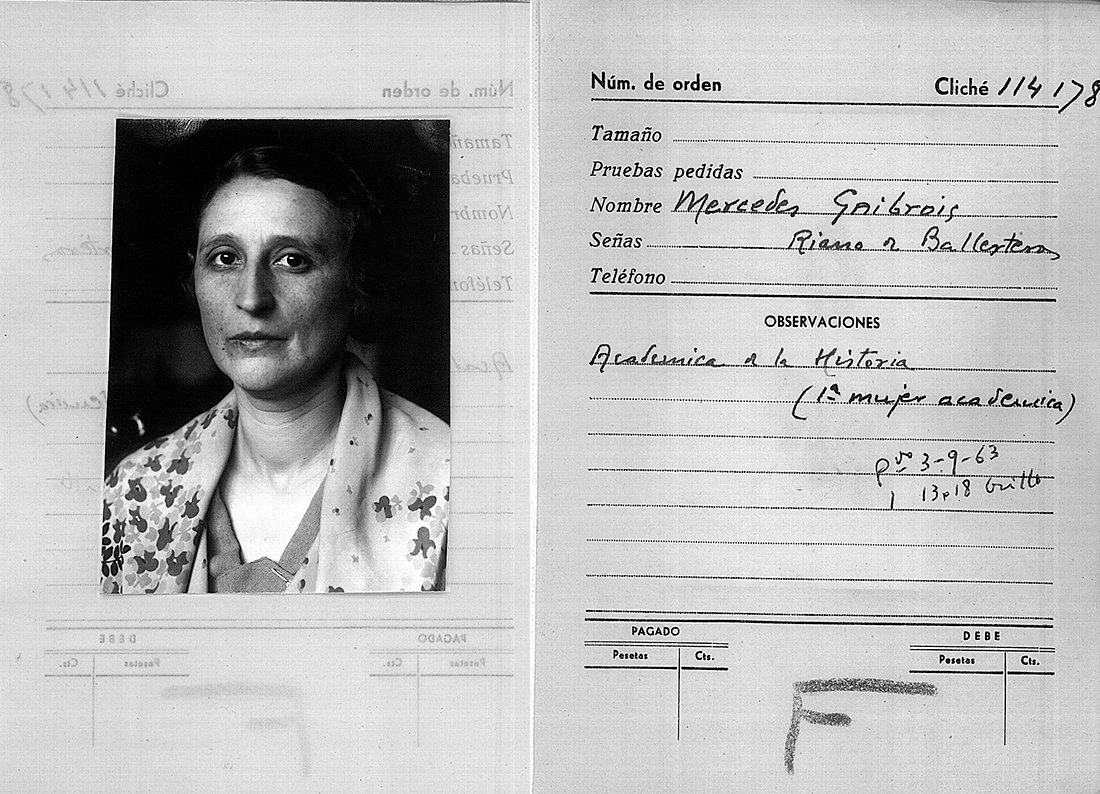 Núm. de orden Cliché 114178
Tamaño
Pruebas pedidas
Nombre Mercedes Gaibrois
Señas Riaño de Ballesteros
Teléfono
OBSERVACIONES
Academica de la Historia
(1ª mujer academica)
3-9-63
13 18
PAGADO DEBE
Pesetas Cts. Pesetas Cts.
F